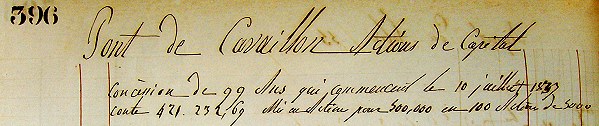 396
Pont de Cavaillon Actions de Capital
Concession de 99 Ans qui commencent le 10 juillet
Coute 471.232,69 Mis en Actions pour 500,000 en 100 Actions de 5000